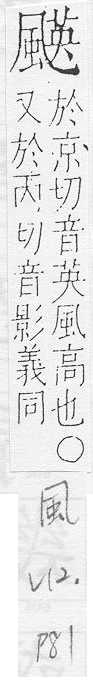 於京切音英風高也○
又於丙切音影義同
風
V12.
P81